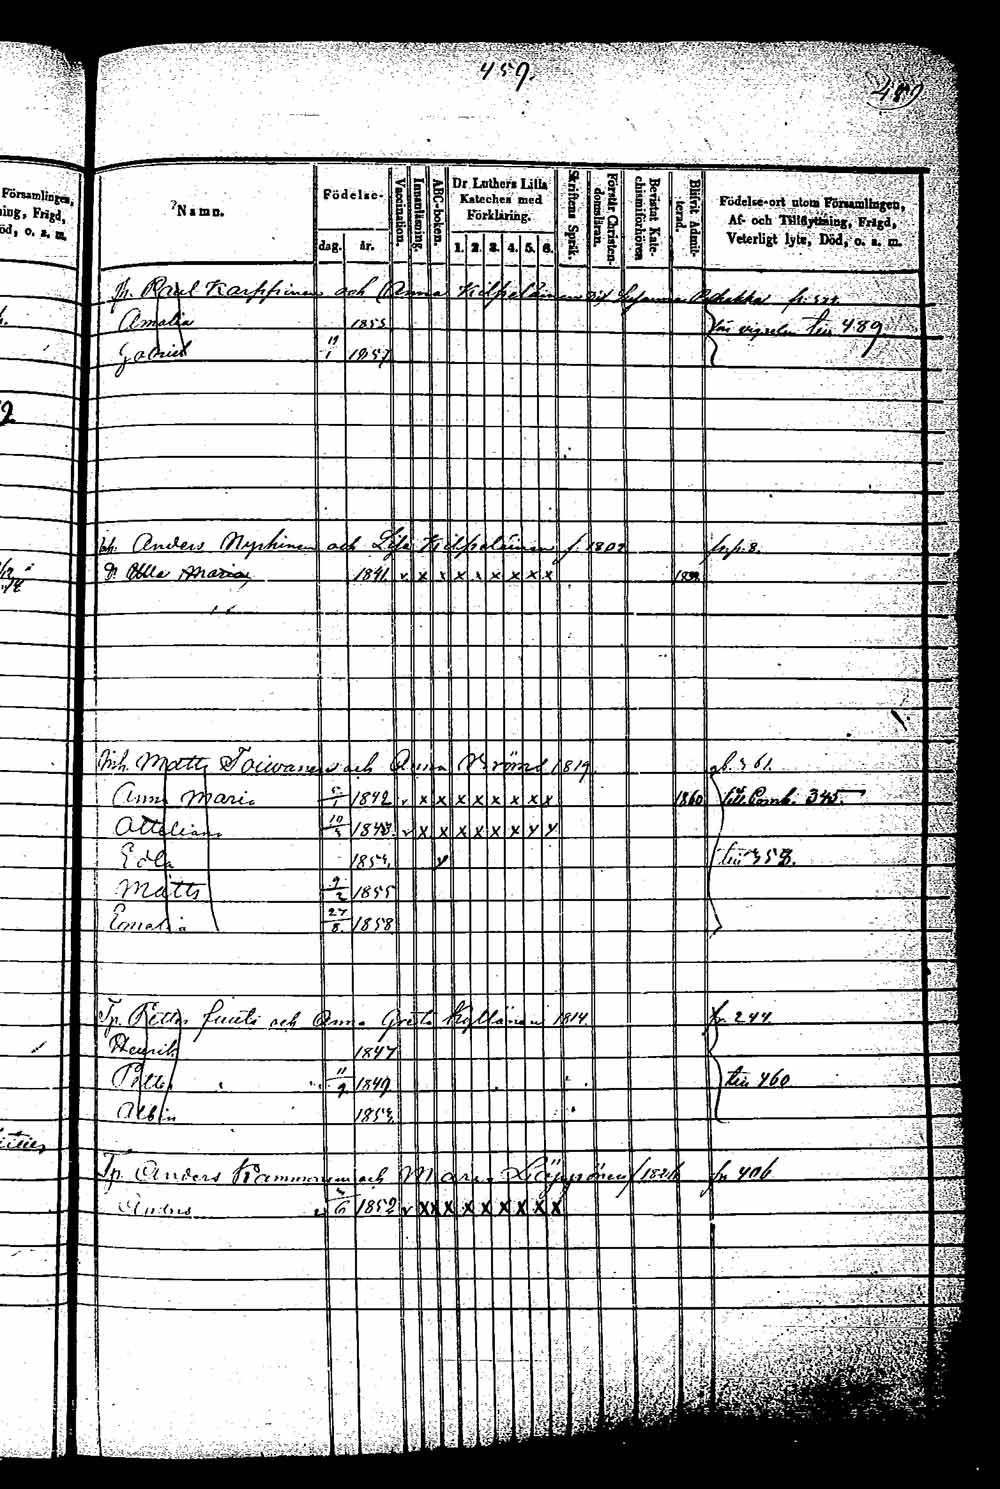 459.
489
Församlingen,
ning, Frägd,
öd, o. s. m.
Namn.
Födelse-
dag. år.
Vaccination.
Innanläsning.
ABC-boken.
Dr Luthers Lilla
Kateches med
Förklaring.
1. 2. 3. 4. 5. 6.
Skriftens Språk.
Förstår Christen-
domsläran.
Bevistat Kate-
chismiförhören
Blifvit Admit-
terad.
Födelse-ort utom Församlingen,
Af- och Tillflyttning, Frägd,
Veterligt lyte, Död, o. s. m.
Paul Karppinen och Anna Kilpeläinen
Amalia 1853
Gabriel 19/1 1857
till 489
Anders Nyrhinen och Lisa Kilpeläinen f. 1802
D. Ulla Maria 1841 v x x x x x x x x
Matts Toivanen och Anna 1819
Anna Maria 5/1 1842 v x x x x x x x x 1860 till Comb. 345.
Attiliana 10/5 1843. v x x x x x x y y
Edla y till 358.
Matts 9/2 1855
Emalia 27/8. 1858
Tp. Petter och Anna Greta 1814 fr 244
Henrik 1847
Petter 11/9 1849 till 460
Albin
Tp. Anders Kammonen och Maria Läppönen 1826 fr 406
Anders 1852 v x x x x x x x x x